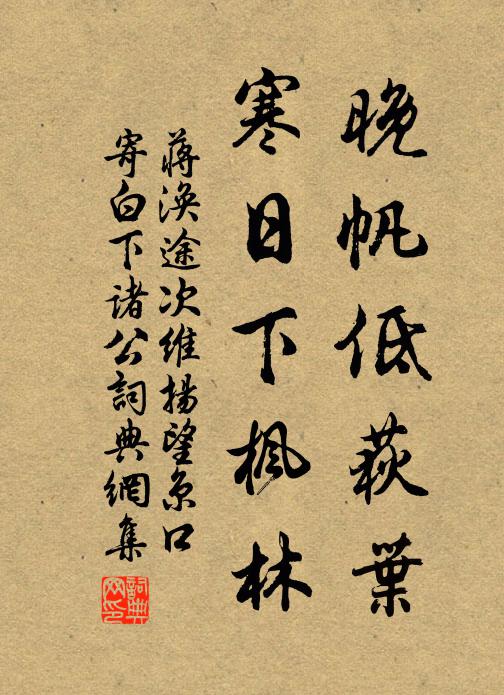 晚帆低荻葉
寒日下楓林
蔣渙途次維揚望京口
寄白下諸公詞典網集
詞典
网印